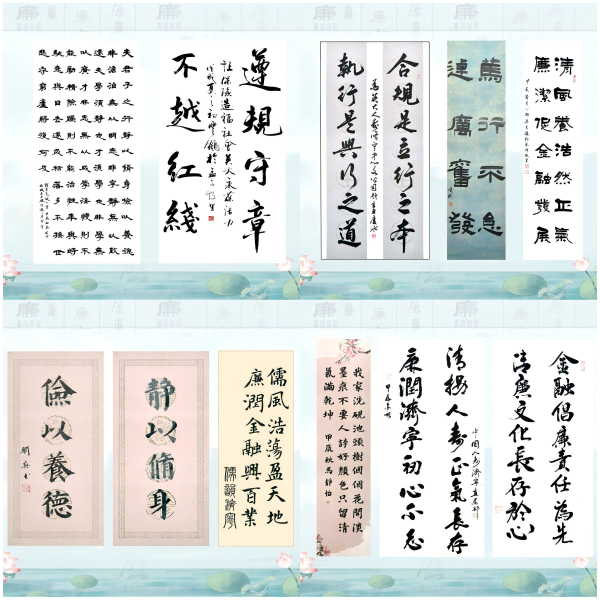 夫君子之行靜以修身儉以養德
非澹泊無以明志非寧靜無以致
遠夫學須靜也才須學也非學無
以廣才非志無以成學淫慢則不
能勵精險躁則不能治性年與時
馳意與日去遂成枯落多不接世
悲守窮廬將復何及
遵規守章
不越紅綫
合規是立行之本
執行是興行之道
篤行不怠
厲奮發
清風養浩然正氣
廉潔促金融發展
儉以養德
靜以脩身
儒風浩蕩盈天地
廉潤金融興百業
儒韻濟寧
我家洗硯池頭樹個個花開淡
墨痕不要人誇好顏色只留清
氣滿乾坤 甲辰秋馬靜怡
清揚人壽正氣長存
廉潤濟寧初心不忘
甲辰
金融倡廉責任為先
清廉文化長存於心